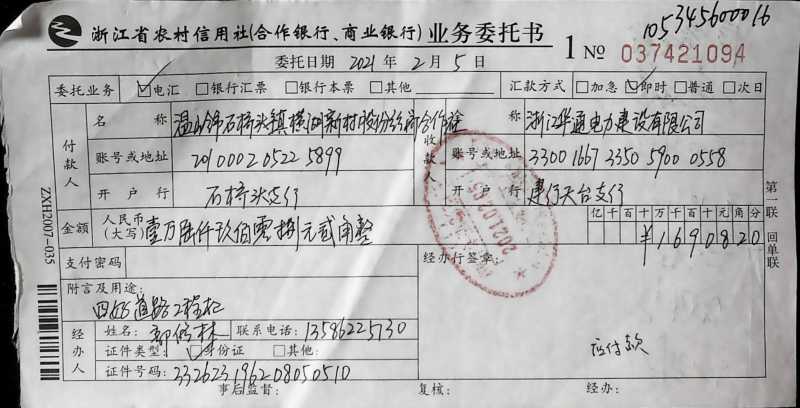 105345600016
浙江省农村信用社(合作银行、商业银行)业务委托书
1 № 037421094
委托日期 2021 年 2 月 5 日
委托业务 ☑电汇 □银行汇票 □银行本票 □其他
汇款方式 □加急 ☑即时 □普通 □次日
付款人
名称 石桥头镇横湖新村股份经济合作社
账号或地址 201000205225899
开户行 石桥头支行
收款人
名称 浙江华通电力建设有限公司
账号或地址 33001667335059000558
开户行 建行天台支行
金额 人民币(大写) 壹万陆仟玖佰零捌元贰角整
亿千百十万千百十元角分
¥1690820
支付密码
经办行签章:
2021.02.05
附言及用途:
道路工程款
应付款
经办人
姓名: 郭修林 联系电话: 13586225130
证件类型: □身份证 □其他:
证件号码: 332623196208050510
事后监督: 复核: 经办:
第一联 回单联
ZXH2007-035